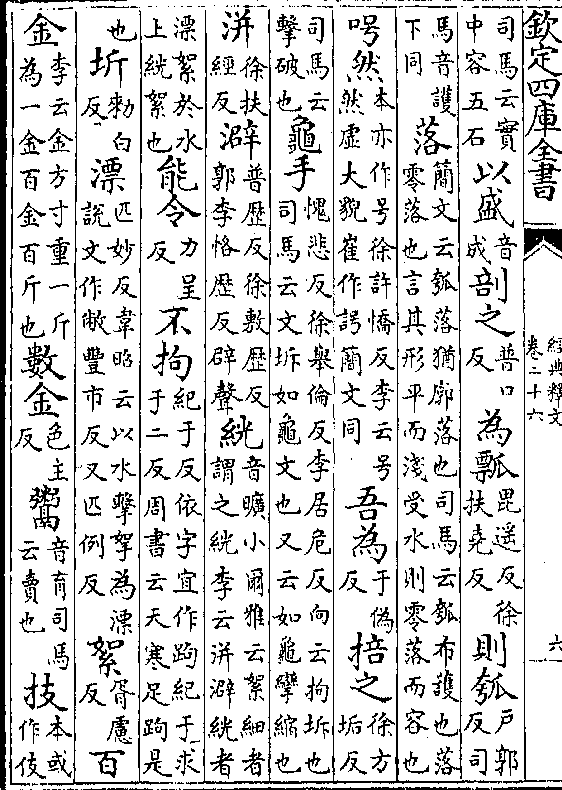 欽定四庫全書
經典釋文
卷二十六
六
司馬云實中容五石以盛音成剖之普口反為瓢毘遥反徐扶堯反則瓠戶郭反司
馬音護下同落簡文云瓠落猶廓落也司馬云瓠布護也落零落也言其形平而淺受水則零落而容也
呺然本亦作号徐許憍反李云号然虛大貌崔作諤簡文同吾為于偽反掊之徐方垢反
司馬云擊破也龜手愧悲反徐舉倫反李居危反向云拘坼也司馬云文坼如龜文也又云如龜攣縮也
洴徐扶經反澼普歷反徐敷歷反郭李恪歷反辟聲絖音曠小爾雅云絮細者謂之絖李云洴澼絖者
漂絮於水上絖絮也能令力呈反不拘紀于反依字宜作跔紀于求于二反周書云天寒足跔是
也坼勑白反漂匹妙反韋昭云以水擊挐為漂說文作敝豐市反又匹例反絮胥慮反百
金李云金方寸重一斤為一金百金百斤也數金色主反鬻音育司馬云賣也技本或作伎